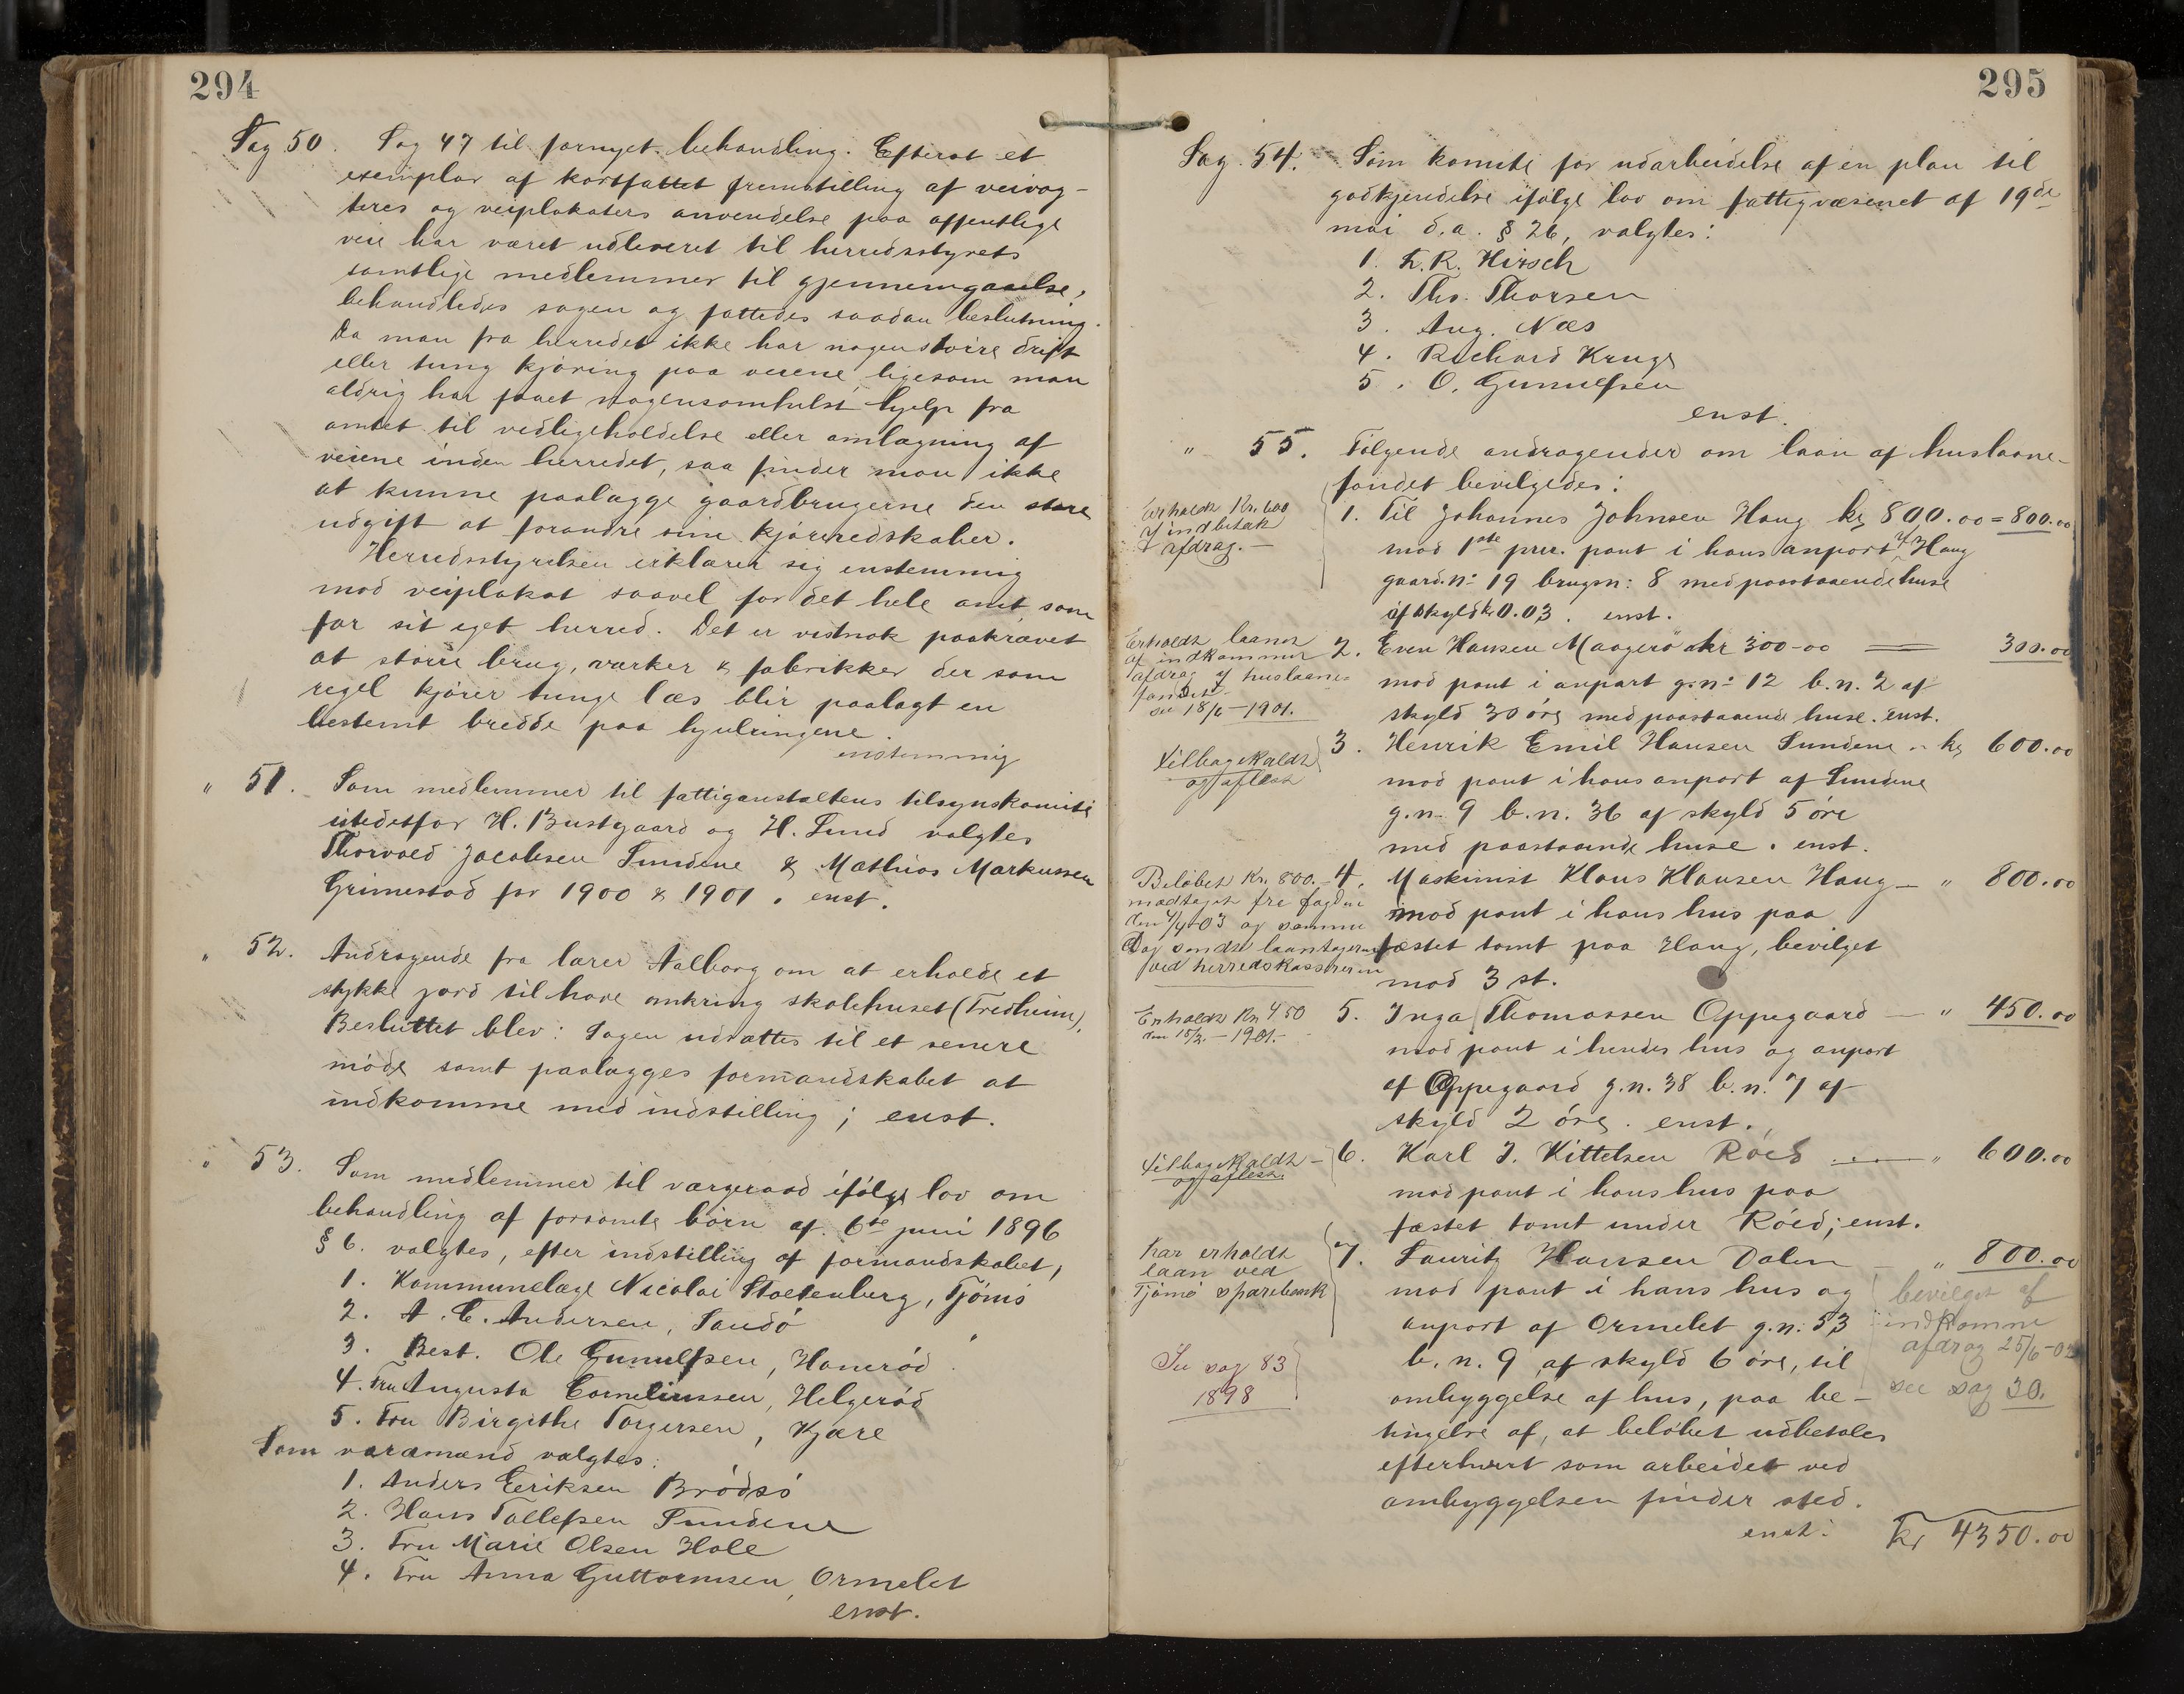 294
Sag 50. Sag 47 til fornyet behandling. Efterat et
exemplar af kortfattet fremstilling af veivog-
teres og veiplakaters anvendelse paa offentlige
veie har været udleveret til herredsstyrets
samtlige medlemmer til gjennemgaaelse,
behandledes sagen og fattedes saadan beslutning.
Da man fra herredet ikke har nogen større drift
eller tung kjøring paa veiene, ligesom man
aldrig har faaet nogensomhelst hjelp fra
amtet til vedligeholdelse eller omlægning af
veiene inden herredet, saa finder man ikke
at kunne paalægge gaardbrugerne den store
udgift at forandre sine kjøreredskaber.
Herredsstyrelsen erklærer sig enstemmig
mod veiplakat saavel for det hele amt som
for sit eget herred. Det er vistnok paakrævet
at større brug, værker & fabrikker der som
regel kjører tunge læs blir paalagt en
bestemt bredde paa hjulringene.
enstemmig
" 51. Som medlemmer til fattiganstaltens tilsynskomite
istedetfor H. Bustgaard og H. Lund valgtes
Thorvald Jacobsen Sundene & Mathias Markussen
Grimestad for 1900 & 1901. enst.
" 52. Andragende fra lærer Aalborg om at erholde et
stykke jord til have omkring skolehuset (Fredheim).
Besluttet blev: Sagen udsættes til et senere
møde samt paalægges formandskabet at
indkomme med indstilling; enst.
" 53. Som medlemmer til værgeraad ifølge lov om
behandling af forsømte børn af 6te juni 1896
§ 6. valgtes, efter indstilling af formandskabet,
1. Kommunelæge Nicolai Stoltenberg, Tjømø
2. A. C. Andersen, Sandø
3. Best. Ole Gunulfsen, Hønerød
4. Fru Augusta Corneliussen, Helgerød
5. Fru Birgithe Torgersen, Kjære
Som varamænd valgtes:
1. Anders Eeriksen Brødsø
2. Hans Tollefsen Sundene
3. Fru Marie Olsen Hole
4. Fru Anna Guttormsen, Ormelet
enst.
295
Sag. 54. Som komite for udarbeidelse af en plan til
godkjendelse ifølge lov om fattigvæsenet af 19de
mai d.a. § 26, valgtes:
1. L. R. Hirsch
2. Ths. Thorsen
3. Aug. Næs
4. Richard Kruge
5. O. Gunulfsen
enst.
" 55. Følgende andragender om laan af huslaane-
fondet bevilgedes:
Erholdt Kr. 600
af indbetalt
afdrag.-
1. Til Johannes Johnsen Haug kr 800.00 = 800.00
mod 1ste prior. pant i hans anport af Haug
gaard.n: 19 brugsn: 8 med paastaaende huse
af skyld kr 0.03. enst.
Erholdt laanet
af indkommet
afdrag af huslaane-
fondet
den 18/6-1901.
2. Even Hansen Maagerø kr 300-00 300.00
mod pant i anpart g.n: 12 b.n. 2 af
skyld 30 øre med paastaaende huse. enst.
tilbagekaldt
og aflest
3. Henrik Emil Hansen Sundene " kr 600.00
mod pant i hans anport af Sundene
g.n. 9 b.n. 36 af skyld 5 øre
med paastaaende huse. enst.
Beløbet Kr. 800.-
modtaget fra fogden
den 7/4-03 og samme
Dag sendt laantageren
ved herredskassereren
4. Maskinist Klaus Klausen Haug - " 800.00
mod pant i hans hus paa
fæstet tomt paa Haug, bevilget
mod 3 st.
Erholdt Kr 450
den 15/2.-1901.-
5. Inga Thomassen Oppegaard - " 450.00
mod pant i hendes hus og anport
af Oppegaard g.n. 38 b.n. 7 af
skyld 2 øre. enst.
tilbagekaldt -
og aflest.
6. Karl J. Kittelsen Røed " 600.00
mod pant i hans hus paa
fæstet tomt under Røed; enst.
har erholdt
laan ved
Tjømø sparebank
7. Lauritz Hansen Dalen " 800.00
mod pant i hans hus og
anport af Ormelet g.n. 53
b.n. 9 af skyld 6 øre, til
ombyggelse af hus, paa be-
tingelse af, at beløbet udbetales
efterhvert som arbeidet ved
ombyggelsen finder sted.
enst.
Se sag 83
1898
bevilget af
indkomne
afdrag 25/6-04
see sag 30.
Kr 4350.00